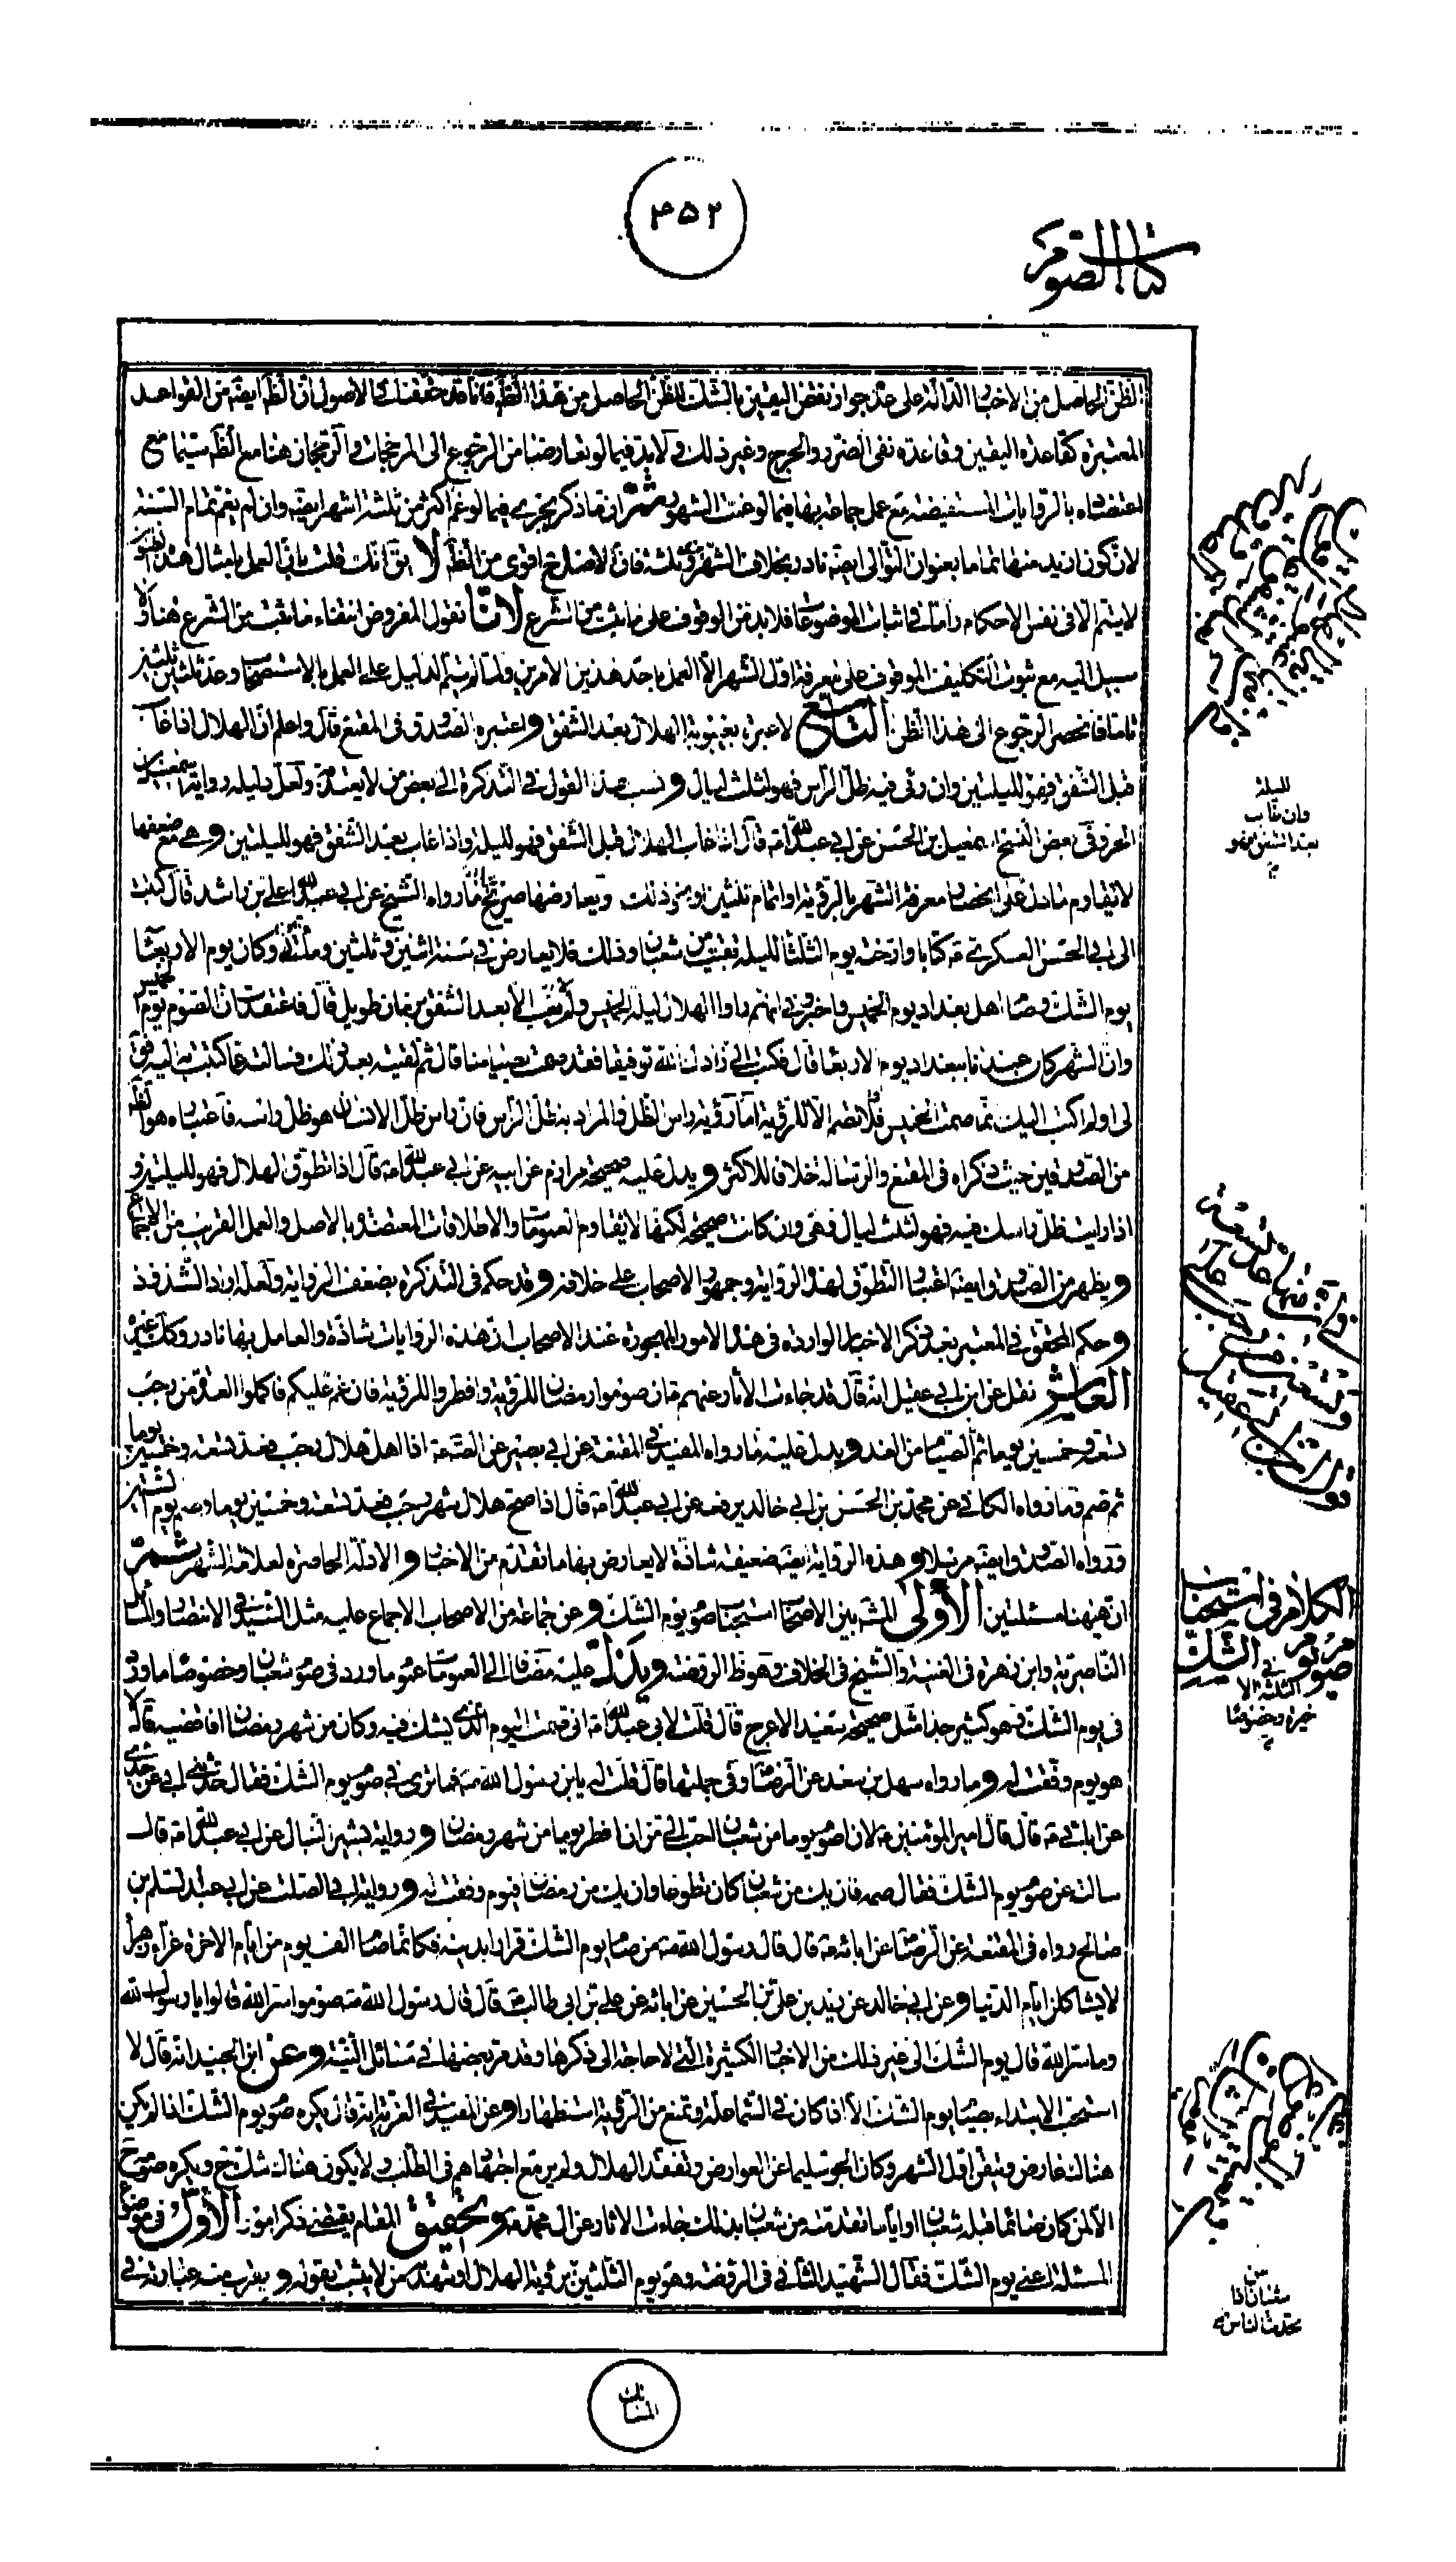 ۳۵۲
كتاب الصوم
الظن الحاصل من الاخبار الدالة على عدم جواز نقض اليقين بالشك للظن الحاصل من هذا الظاهر فانا قد حققنا في الاصول ان الظاهر ايضا من القواعد
المعتبرة كقاعدة اليقين وقاعدة نفى الضرر والحرج وغير ذلك ولا بد فيما لو تعارضنا من الرجوع الى المرجحات والرجحان هنا مع الظاهر سيما مع
اعتضاده بالروايات المستفيضة مع عمل جماعة بها فيما لو غمت الشهور ثم ان ما ذكر يجرى فيما لو غم اكثر من ثلثة اشهر ايضا وان لم يغم تمام السنة
لان كون ازيد منها تماما بعنوان التوالى ايضا نادر بخلاف الشهرين وثلثة فان الاصل ح اقوى من الظاهر لا يق انك قلت باقى العمل بامثال هذه الظنون
لا يتم الا فى نفس الاحكام واما فى اثبات الموضوعات فلا بد من الوقوف على ما يثبت من الشرع لانا نقول المفروض انتفاء ما يثبت من الشرع هنا ولا
سبيل اليه مع ثبوت التكليف الموقوف على معرفة اول الشهر الا العمل باحد هذين الامرين ولما لم يتم الدليل على العمل بالاستصحاب وعد ثلثين ثلثين
تاما فانحصر الرجوع الى هذا الظن التاسع لا عبرة بغيبوبة الهلال بعد الشفق واعتبره الصدوق فى المقنع قال واعلم ان الهلال اذا غاب
قبل الشفق فهو لليلتين وان رئى فيه ظل الراس فهو لثلث ليال ونسب هذا القول فى التذكرة الى بعض من لا يعتد به ولعل دليله رواية اسمعيل بن
الحر وفى بعض النسخ اسمعيل بن الحسن عن ابى عبد الله ع قال اذا غاب الهلال قبل الشفق فهو لليلة واذا غاب بعد الشفق فهو لليلتين وهى مع ضعفها
لا تقاوم ما دل على انحصار معرفة الشهر بالرؤية او اتمام ثلثين ونحو ذلك ويعارضها صريحا ما رواه الشيخ عن ابى عبد الله على بن راشد قال كتب
الى ابو الحسن العسكرى ع كتابا وارخه يوم الثلثا لليلة بقيت من شعبان وذلك فى سنة اثنين وثلثين ومأتين وكان يوم الاربعا
يوم الشك وصام اهل بغداد يوم الخميس واخبرونى انهم راوا الهلال ليلة الخميس ولم يغب الا بعد الشفق بزمان طويل قال فاعتقدت ان الصوم يوم الخميس
وان الشهر كان عندنا ببغداد يوم الاربعا قال فكتب الى زادك الله توفيقا فقد صمت بصيامنا قال ثم لقيته بعد ذلك فسالته عما كتبت به اليه فق
لى اولم اكتب اليك انما صمت الخميس فلا تصم الا للرؤية اما رؤية راس الظل والمراد به ظل الراس فان راس ظل الانسان هو ظل راسه فاعتباره هو الظاهر
من الصدوقين حيث ذكراه فى المقنع والرسالة خلافا للاكثر ويدل عليه صحيحة مرازم عن ابيه عن ابى عبد الله ع قال اذا تطوق الهلال فهو لليلتين و
اذا رايت ظل راسك فيه فهو لثلث ليال فهى وان كانت صحيحة لكنها لا تقاوم العمومات والاطلاقات المعتضدة بالاصل والعمل القريب من الاجماع
ويظهر من الصدوق ايضا اعتبار التطوق لهذه الرواية وجمهور الاصحاب على خلافه وقد حكم فى التذكرة بضعف الرواية ولعله اراد الشذوذ
وحكم المحقق فى المعتبر بعد ذكر الاخبار الواردة فى هذه الامور المهجورة عند الاصحاب ان هذه الروايات شاذة والعامل بها نادر وكذا غيره
العاشر نقل عن ابن ابى عقيل انه قال قد جاءت الآثار عنهم ع ان صوموا رمضان للرؤية وافطروا للرؤية فان غم عليكم فاكملوا العدة من رجب
تسعة وخمسين يوما ثم الصيام من الغد ويدل عليه ما رواه المفيد فى المقنعة عن ابى بصير عن الصادق ع اذا اهل هلال رجب فعد تسعة وخمسين يوما
ثم صم وما رواه الكافى عن محمد بن الحسن بن ابى خالد يرفعه عن ابى عبد الله ع قال اذا صح هلال شهر رجب فعد تسعة وخمسين يوما وصم يوم الستين
ورواه الصدوق ايضا مرسلا وهذه الرواية ايضا ضعيفة شاذة لا يعارض بها ما تقدم من الاخبار والادلة الحاصرة لعلامة الشهر ثم
ان هيهنا مسئلتين الاولى المش بين الاصحاب استحباب صوم يوم الشك وعن جماعة من الاصحاب الاجماع عليه مثل السيد فى الانتصار والمسائل
الناصرية وابن زهرة فى الغنية والشيخ فى الخلاف وهو ظ الروضة ويدل عليه مضافا الى العمومات عموم ما ورد فى صوم شعبان وخصوصا ما ورد
فى يوم الشك فهو كثير جدا مثل صحيحة سعيد الاعرج قال قلت لابى عبد الله ع انى صمت اليوم الذى يشك فيه وكان من شهر رمضان افاقضيه قال لا
هو يوم وفقت له وما رواه سهل بن سعد عن الرضا ع وفى جملتها قال قلت له يابن رسول الله ص فما ترى فى صوم يوم الشك فقال حدثنى ابى عن جدى
عن ابائى ع قال قال امير المؤمنين ع لان اصوم يوما من شعبان احب الى من ان افطر يوما من شهر رمضان ورواية بشير النبال عن ابى عبد الله ع قال
سالته عن صوم يوم الشك فقال صمه فان يك من شعبان كان تطوعا وان يك من رمضان فيوم وفقت له ورواية ابى الصلت عن ابى عبد السلم بن
صالح رواه فى المقنعة عن الرضا عن ابائه ع قال قال رسول الله ص من صام يوم الشك فرارا بدينه فكانما صام الف يوم من ايام الاخرة غراء زهرا
لا يشاكلن ايام الدنيا وعن ابى خالد عن زيد بن على بن الحسين عن ابائه عن على بن ابى طالب ع قال قال رسول الله ص صوموا سر الله قالوا يا رسول الله
وما سر الله قال يوم الشك الى غير ذلك من الاخبار الكثيرة التى لا حاجة الى ذكرها وقد مر بعضها فى مسائل النية وعن ابن الجنيد انه قال لا
استحب الابتداء بصيام يوم الشك الا اذا كان فى السماء علة تمنع من الرؤية استظهارا وعن المفيد فى الغرية انه قال يكره صوم يوم الشك اذا لم يكن
هناك عارض وتيقن اول الشهر وكان الجو سليما عن العوارض وتفقد الهلال ولم ير مع اجتهادهم فى الطلب ولا يكون هناك شك ح ويكره صومه ح
الا لمن كان صائما قبله شعبان او اياما تقدمته من شعبان بذلك جاءت الاثار عن ال محمد ع وتحقيق المقام يقتضى ذكر امور الاول فى موضوع
المسئلة اعنى يوم الشك فقال الشهيد الثانى فى الروضة وهو يوم الثلثين برؤية الهلال او شهد من لا يثبت بقوله ويقرب منه عبارته فى
لليلة
وان غاب
بعد الشفق فهو
الكلام فى استحباب
صوم يوم الشك
المسالك